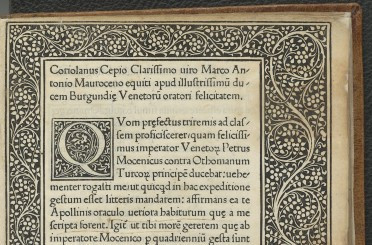 Coriolanus Cepio Clarissimo uiro Marco An-
tonio Mauroceno equiti apud illustrissimū du-
cem Burgundię Venetorū oratori felicitatem.
QVom prefectus triremis ad clas-
sem proficiscerer: quam felicissi-
mus imperator Venetoꝝ Petrus
Mocenicus contra Othomanum
Turcoꝝ principē ducebat: uehe-
menter rogasti me: ut quicqd in hac expeditione
gestum esset litteris mandarem: affirmans ea te
Apollinis oraculo uetiora habiturum que a me
scripta forent. Igit̄ ut tibi morē gererem que ab
imperatore Mocenico p quadrienniū gesta sunt